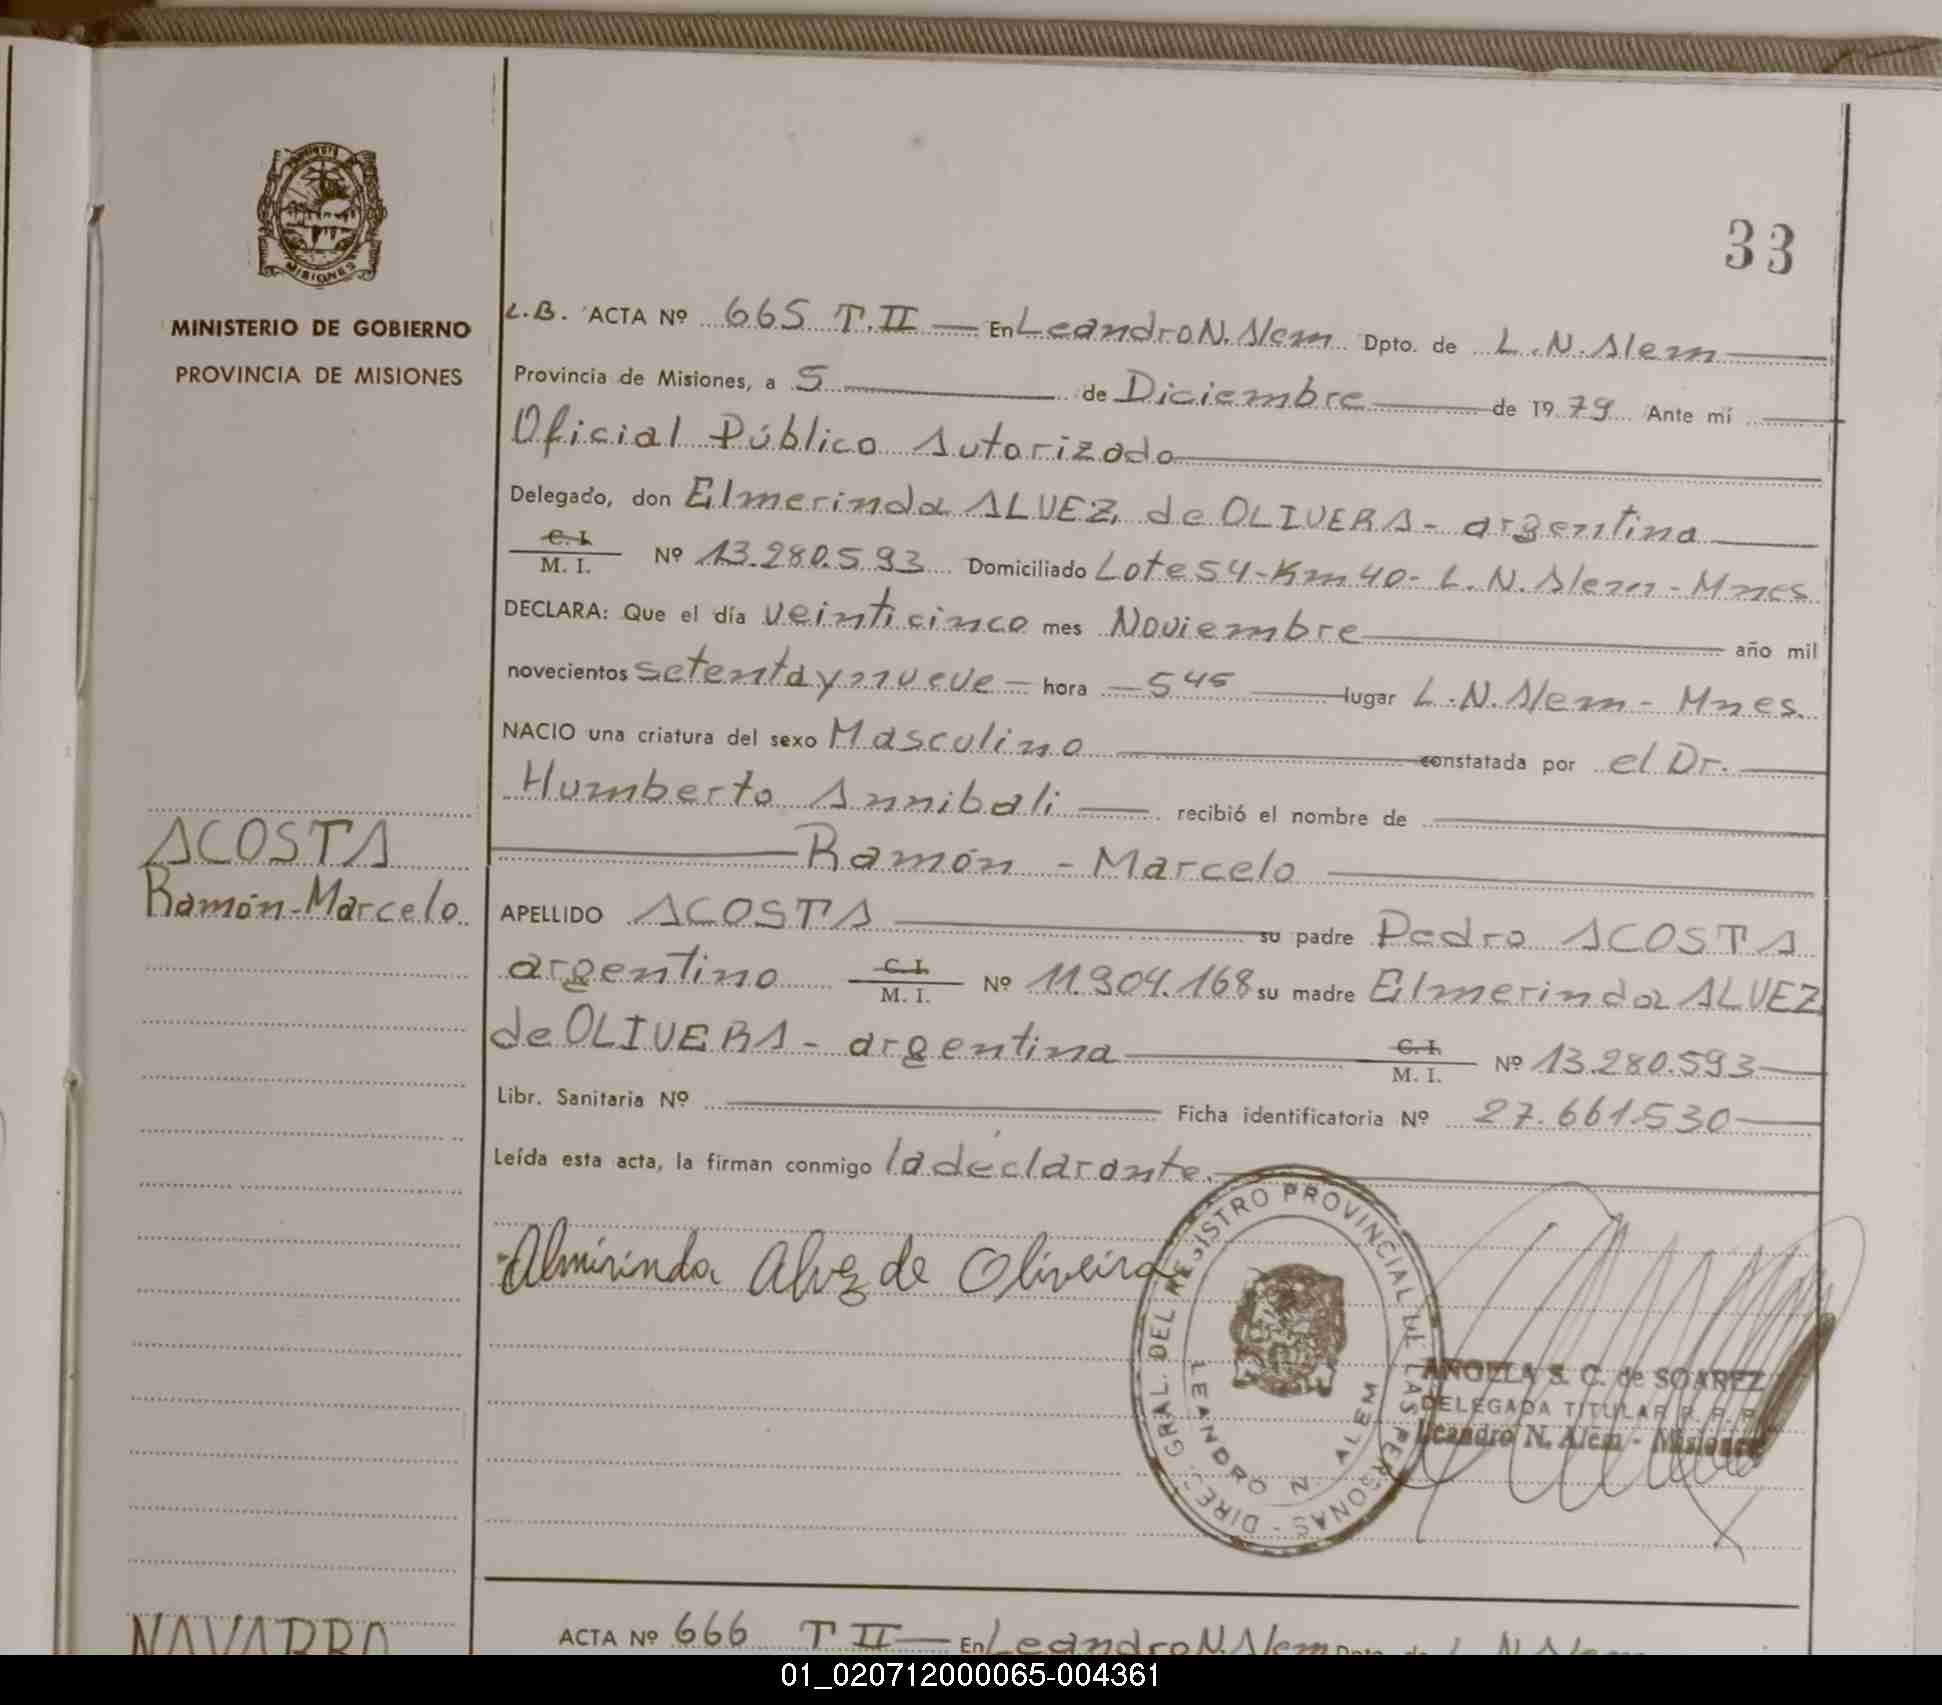 MISIONES
MINISTERIO DE GOBIERNO
PROVINCIA DE MISIONES
33
L.B. ACTA Nº 665 T.II — En Leandro N. Alem Dpto. de L.N. Alem
Provincia de Misiones, a 5 de Diciembre de 1979 Ante mí
Oficial Público Autorizado
Delegado, don Elmerinda ALVEZ de OLIVERA - argentina
C. I. / M. I. Nº 13.280.593 Domiciliado Lote 54 - Km 40 - L.N. Alem - Mnes
DECLARA: Que el día veinticinco mes Noviembre año mil
novecientos setenta y nueve — hora — 5 45 — lugar L.N. Alem - Mnes.
NACIO una criatura del sexo Masculino constatada por el Dr.
Humberto Annibali recibió el nombre de
Ramón - Marcelo
ACOSTA
Ramón-Marcelo
APELLIDO ACOSTA su padre Pedro ACOSTA
argentino C. I. / M. I. Nº 11.904.168 su madre Elmerinda ALVEZ
de OLIVERA - argentina C. I. / M. I. Nº 13.280.593
Libr. Sanitaria Nº Ficha identificatoria Nº 27.661.530
Leída esta acta, la firman conmigo la declarante.
Almirinda Alvez de Oliveira
DIREC. GRAL. DEL REGISTRO PROVINCIAL DE LAS PERSONAS -
LEANDRO N. ALEM
ANGELA S. C. de SOAREZ
DELEGADA TITULAR R. P. P.
Leandro N. Alem - Misiones
NAVARRO
ACTA Nº 666 T II — En Leandro N. Alem Dpto. de L. N. Alem
01_020712000065-004361